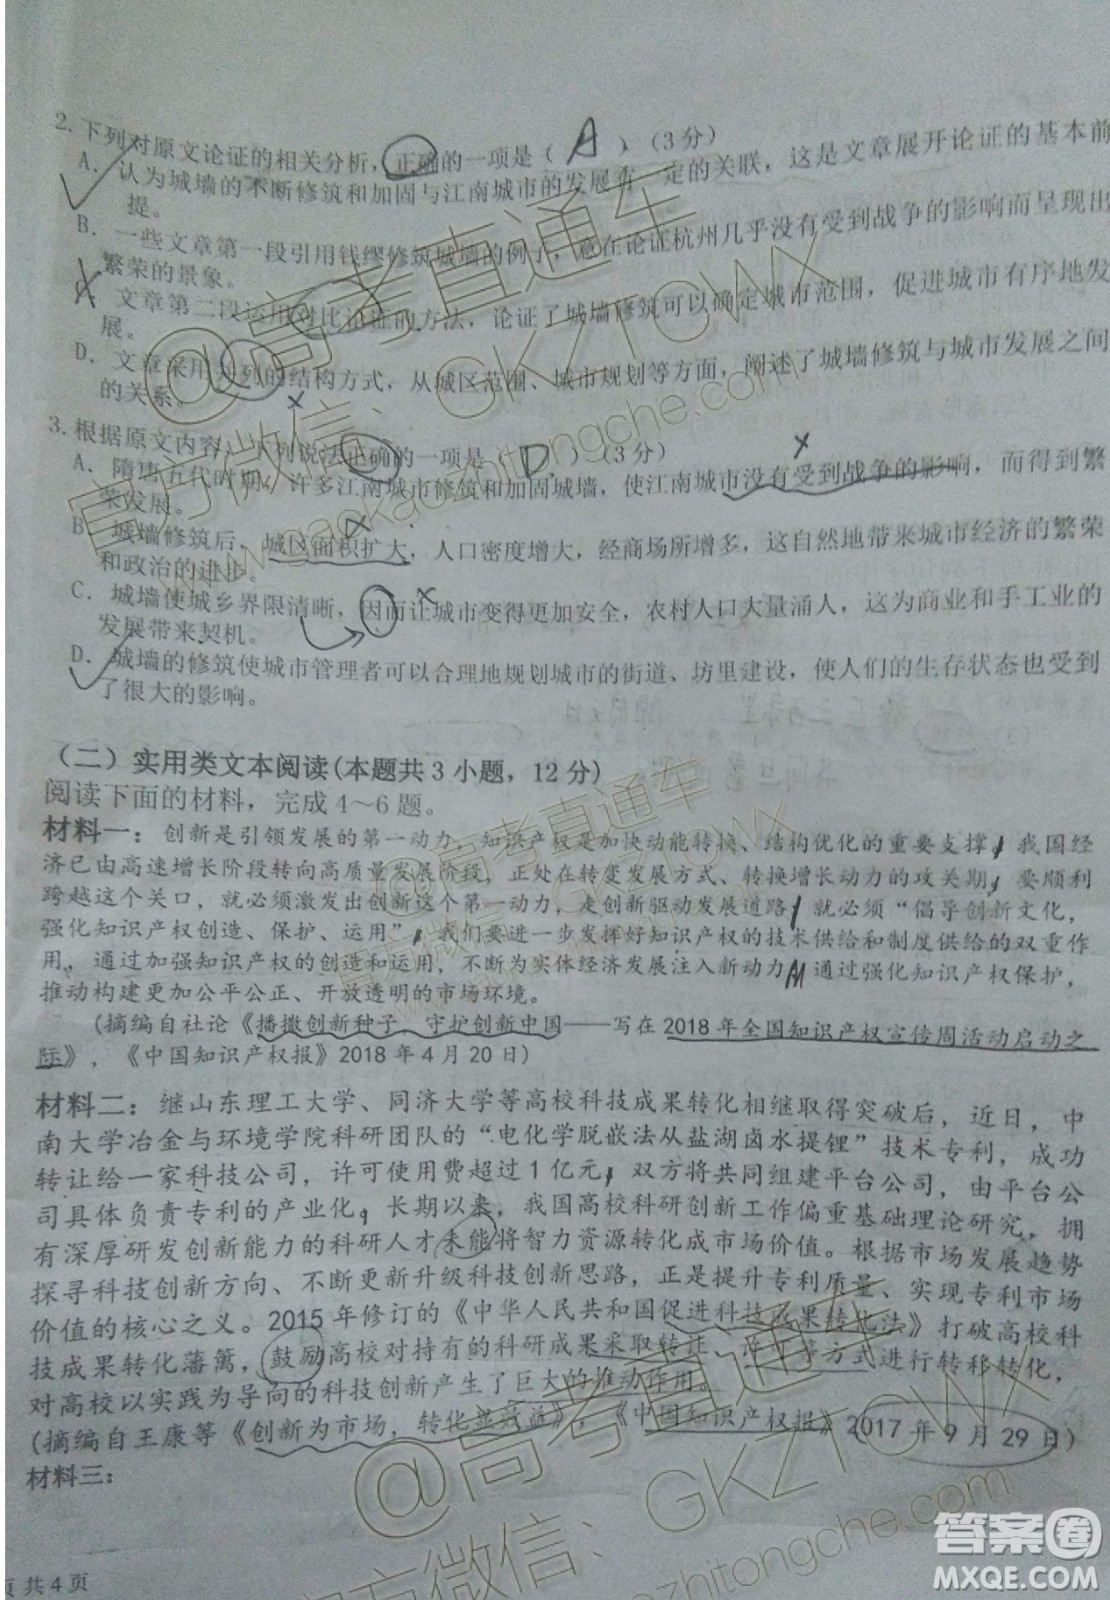 2. 下列对原文论证的相关分析，正确的一项是（ A ）（3分）
A. 认为城墙的不断修筑和加固与江南城市的发展有一定的关联，这是文章展开论证的基本前
提。
B. 一些文章第一段引用钱缪修筑城墙的例子，意在论证杭州几乎没有受到战争的影响而呈现出
繁荣的景象。
文章第二段运用对比论证的方法，论证了城墙修筑可以确定城市范围，促进城市有序地发
展。
D. 文章采用并列的结构方式，从城区范围、城市规划等方面，阐述了城墙修筑与城市发展之间
的关系。
3. 根据原文内容，下列说法正确的一项是（ D ）（3分）
A. 隋唐五代时期，许多江南城市修筑和加固城墙，使江南城市没有受到战争的影响，而得到繁
荣发展。
B. 城墙修筑后，城区面积扩大，人口密度增大，经商场所增多，这自然地带来城市经济的繁荣
和政治的进步。
C. 城墙使城乡界限清晰，因而让城市变得更加安全，农村人口大量涌人，这为商业和手工业的
发展带来契机。
D. 城墙的修筑使城市管理者可以合理地规划城市的街道、坊里建设，使人们的生存状态也受到
了很大的影响。
（二）实用类文本阅读(本题共3小题，12分)
阅读下面的材料，完成4～6题。
材料一：创新是引领发展的第一动力，知识产权是加快动能转换、结构优化的重要支撑，我国经
济已由高速增长阶段转向高质量发展阶段，正处在转变发展方式、转换增长动力的攻关期，要顺利
跨越这个关口，就必须激发出创新这个第一动力，走创新驱动发展道路，就必须“倡导创新文化，
强化知识产权创造、保护、运用”，我们要进一步发挥好知识产权的技术供给和制度供给的双重作
用，通过加强知识产权的创造和运用，不断为实体经济发展注入新动力，通过强化知识产权保护，
推动构建更加公平公正、开放透明的市场环境。
(摘编自社论《播撒创新种子，守护创新中国——写在2018年全国知识产权宣传周活动启动之
际》，《中国知识产权报》2018年4月20日)
材料二：继山东理工大学、同济大学等高校科技成果转化相继取得突破后，近日，中
南大学冶金与环境学院科研团队的“电化学脱嵌法从盐湖卤水提锂”技术专利，成功
转让给一家科技公司，许可使用费超过1亿元，双方将共同组建平台公司，由平台公
司具体负责专利的产业化。长期以来，我国高校科研创新工作偏重基础理论研究，拥
有深厚研发创新能力的科研人才未能将智力资源转化成市场价值。根据市场发展趋势
探寻科技创新方向、不断更新升级科技创新思路，正是提升专利质量、实现专利市场
价值的核心之义。2015年修订的《中华人民共和国促进科技成果转化法》打破高校科
技成果转化藩篱，鼓励高校对持有的科研成果采取转让、许可等方式进行转移转化，
对高校以实践为导向的科技创新产生了巨大的推动作用。
(摘编自王康等《创新为市场，转化显效益》，《中国知识产权报》2017年9月29日)
材料三：
页共4页
@高考直通车
官方微信：GKZTCWX
www.gaokaozhitongche.com
@高考直通车
官方微信：GKZTCWX
@高考直通车
官方微信：GKZTCWX
gaokaozhitongche.com
答案圈
MXQE.COM